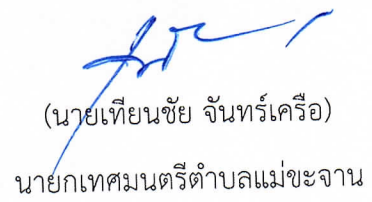 (นายเทียนชัย จันทร์เครือ)
นายกเทศมนตรีตำบลแม่ขะจาน